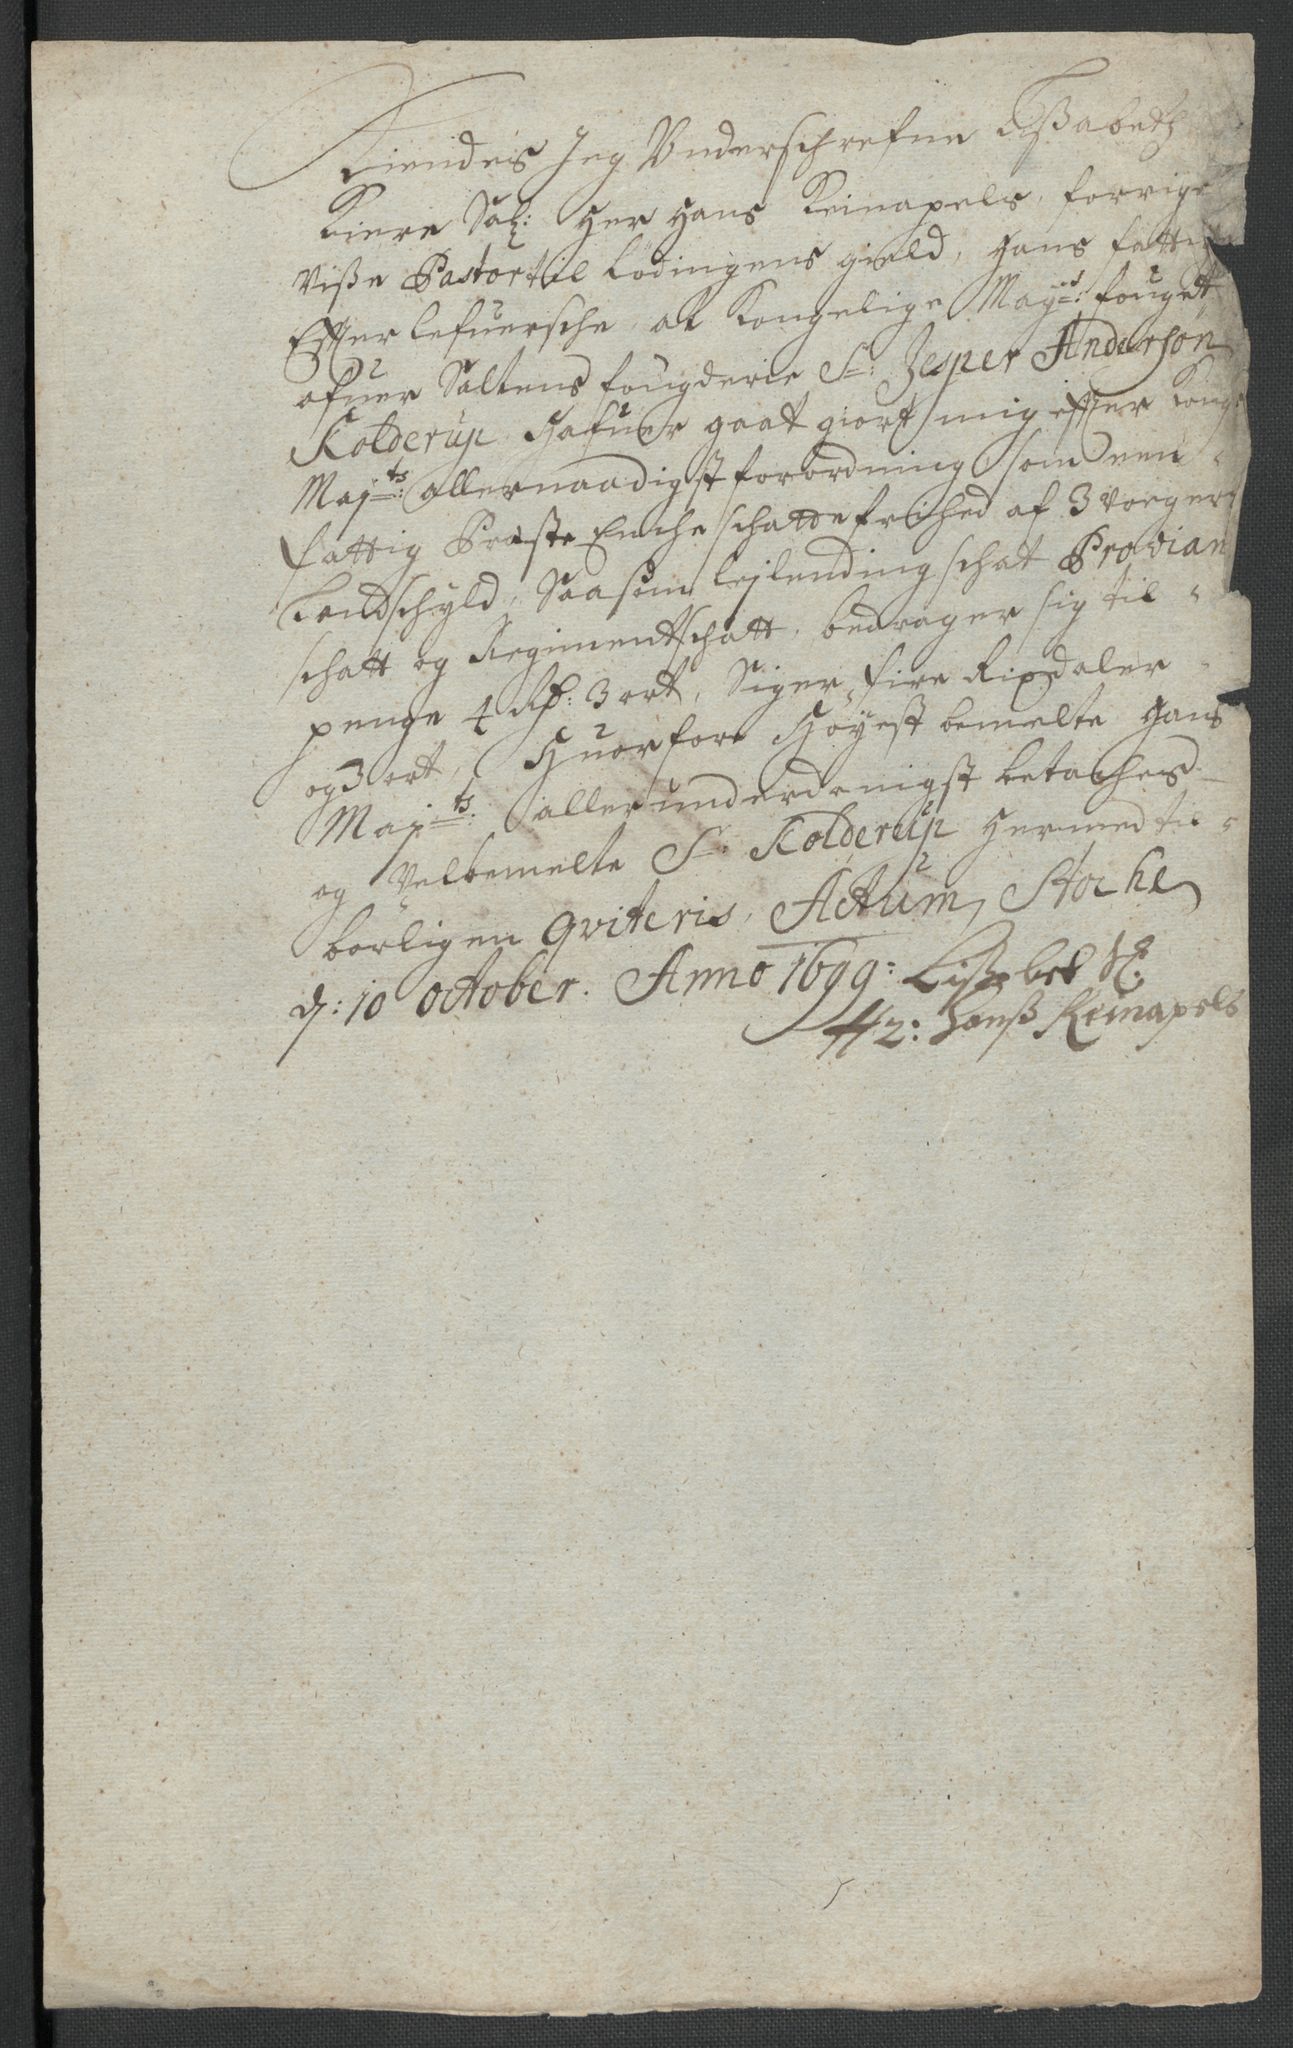 Kiendes Jeg Underschrefne Lißabeth
Kiere Sal: Her Hans Reinapels, forrige
Viße Pastor til Lødingens gield, Hans fattig
Effterlefuersche, at Kongelige Mayts: fougett
ofuer Saltens fougderie Sr: Jesper Andersøn
Kolderup Hafuer gaat giort mig effter Kongl
Majts: allernaadigst forordning som een
fattig Præste Enche schatte frihed af 3 voeger
Landschyld, Saasom Leylending schat Provian
schatt og Regimentschatt, bedrager sig til
penge 4 Rd: 3 ort, Siger fire Rixdaler
og 3 ort, Huorfore Høyest bemelte Hans
Majts: allerunderdanigst betaches
og Velbemelte Sr: Kolderup Hermed til
børligen qviteris, Actum Stoche
d: 10 October. Anno 1699: Lißabet
Hr: Hanß Reinapels